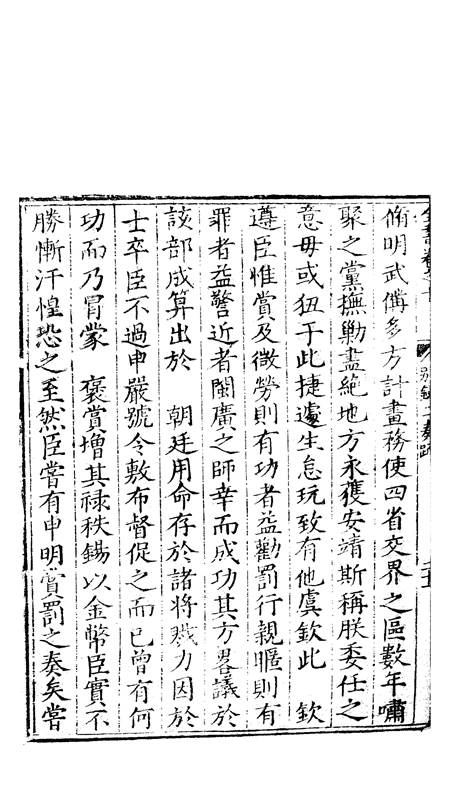 全書卷之十　別錄二奏疏
脩明武備多方計畫務使四省交界之區數年嘯
聚之黨撫勦盡絕地方永獲安靖斯稱朕委任之
意毋或狃于此捷遽生怠玩致有他虞欽此　欽
遵臣惟賞及微勞則有功者益勸罰行親暱則有
罪者益警近者閩廣之師幸而成功其方畧議於
該部成算出於　朝廷用命存於諸將戮力因於
士卒臣不過申嚴號令敷布督促之而已曾有何
功而乃冒蒙　褒賞增其祿秩錫以金幣臣實不
勝慚汗惶恐之至然臣嘗有申明賞罰之奏矣嘗